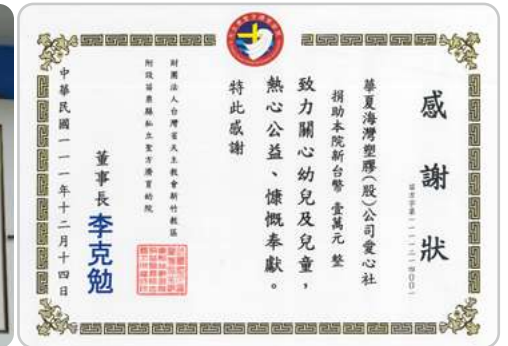 感謝狀
華夏海灣塑膠(股)公司愛心社
捐助本院新台幣 壹萬元 整
致力關心幼兒及兒童，
熱心公益、慷慨奉獻。
特此感謝
財團法人台灣省天主教會新竹教區
附設苗栗縣私立聖方濟育幼院
董事長 李克勉
中華民國一一一年十二月十四日